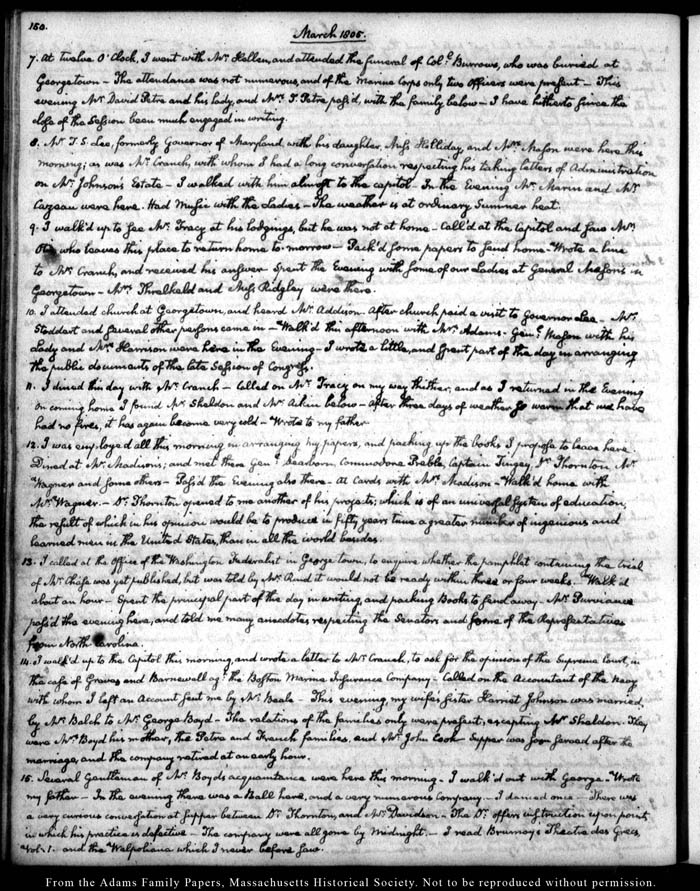 150.
March 1805.
7. At twelve O'Clock, I went with Mr Hellen, and attended the funeral of Coll Burrows, who was buried at
Georgetown — The attendance was not numerous, and of the Marine Corps only two Officers were present — This
evening Mr David Peter and his lady, and Mrs T. Peter, pass'd, with the family below — I have hitherto since the
close of the Session been much engaged in writing.
8. Mr T. S. Lee, formerly Governor of Maryland with his daughter, Miss Holliday, and Mrs Mason were here this
morning; as was Mr Cranch, with whom I had a long conversation respecting his taking letters of Administration
on Mr Johnson's Estate — I walked with him almost to the capitol — In the Evening Mr Marin and Mr
Cazeau were here. Had Music with the Ladies — The weather is at ordinary Summer heat.
9. I walk'd up to see Mr Tracy at his lodgings, but he was not at home — Call'd at the Capitol and saw Mr
Otis who leaves this place to return home to-morrow — Pack'd some papers to send home — Wrote a line
to Mr Cranch, and received his answer — Spent the Evening with some of our Ladies at General Mason's in
Georgetown — Mrs Threlkeld and Miss Ridgley were there.
10. I attended church at Georgetown, and heard Mr Addison. After church paid a visit to Governor Lee — Mr
Stoddart and several other persons came in — Walk'd this afternoon with Mrs Adams — Genl Mason with his
Lady and Mrs Harrison were here in the Evening — I wrote a little, and spent part of the day in arranging
the public documents of the late Session of Congress.
11. I dined this day with Mr Cranch — Called on Mr Tracy on my way thither, and as I returned in the Evening
on coming home I found Mr Sheldon and Mr Aikin below — After three days of weather so warm that we have
had no fires, it has again become very cold — Wrote to my father
12. I was employed all this morning in arranging my papers, and packing up the books I propose to leave here
Dined at Mr Madison's; and met there Genl Dearborn, Commodore Preble, Captain Tingey, Dr Thornton, Mr
Wagner and some others — Pass'd the Evening also there — At Cards with Mrs Madison — Walk'd home with
Mr Wagner. — Dr Thornton opened to me another of his projects; which is of an universal system of education,
the result of which in his opinion would be to produce in fifty years time a greater number of ingenious and
learned men in the United States, than in all the world besides.
13. I called at the Office of the Washington Federalist in Georgetown, to enquire whether the pamphlet containing the trial
of Mr Chase was yet published, but was told by Mr Rind it would not be ready within three or four weeks. Walk'd
about an hour — Spent the principal part of the day in writing, and packing Books to send away — Mr Purviance
pass'd the evening here, and told me many anecdotes respecting the Senators and some of the Representatives
from North Carolina.
14. I walk'd up to the Capitol this morning, and wrote a letter to Mr Cranch, to ask for the opinion of the Supreme Court, in
the case of Graves and Barnewall agt the Boston Marine Insurance Company — Called on the Accountant of the Navy
with whom I left an Account sent me by Mr Beale — This evening, my wife's sister Harriet Johnson was married,
by Mr Balch to Mr George Boyd — The relations of the families only were present; excepting Mr Sheldon. They
were Mrs Boyd his mother, the Peter and French families, and Mr John Cook — Supper was soon served after the
marriage, and the company retired at an early hour.
15. Several Gentlemen of Mr Boyd's acquaintance were here this morning — I walk'd out with George. Wrote
my father — In the evening there was a Ball here, and a very numerous Company. — I danced once — There was
a very curious conversation at Supper between Dr Thornton, and Mr Davidson — The Dr offers instruction upon points
in which his practice is defective — The company were all gone by Midnight. — I read Brumoy's Theatre des Grecs,
Vol: 1. and the Walpoliana which I never before saw.
From the Adams Family Papers, Massachusetts Historical Society. Not to be reproduced without permission.